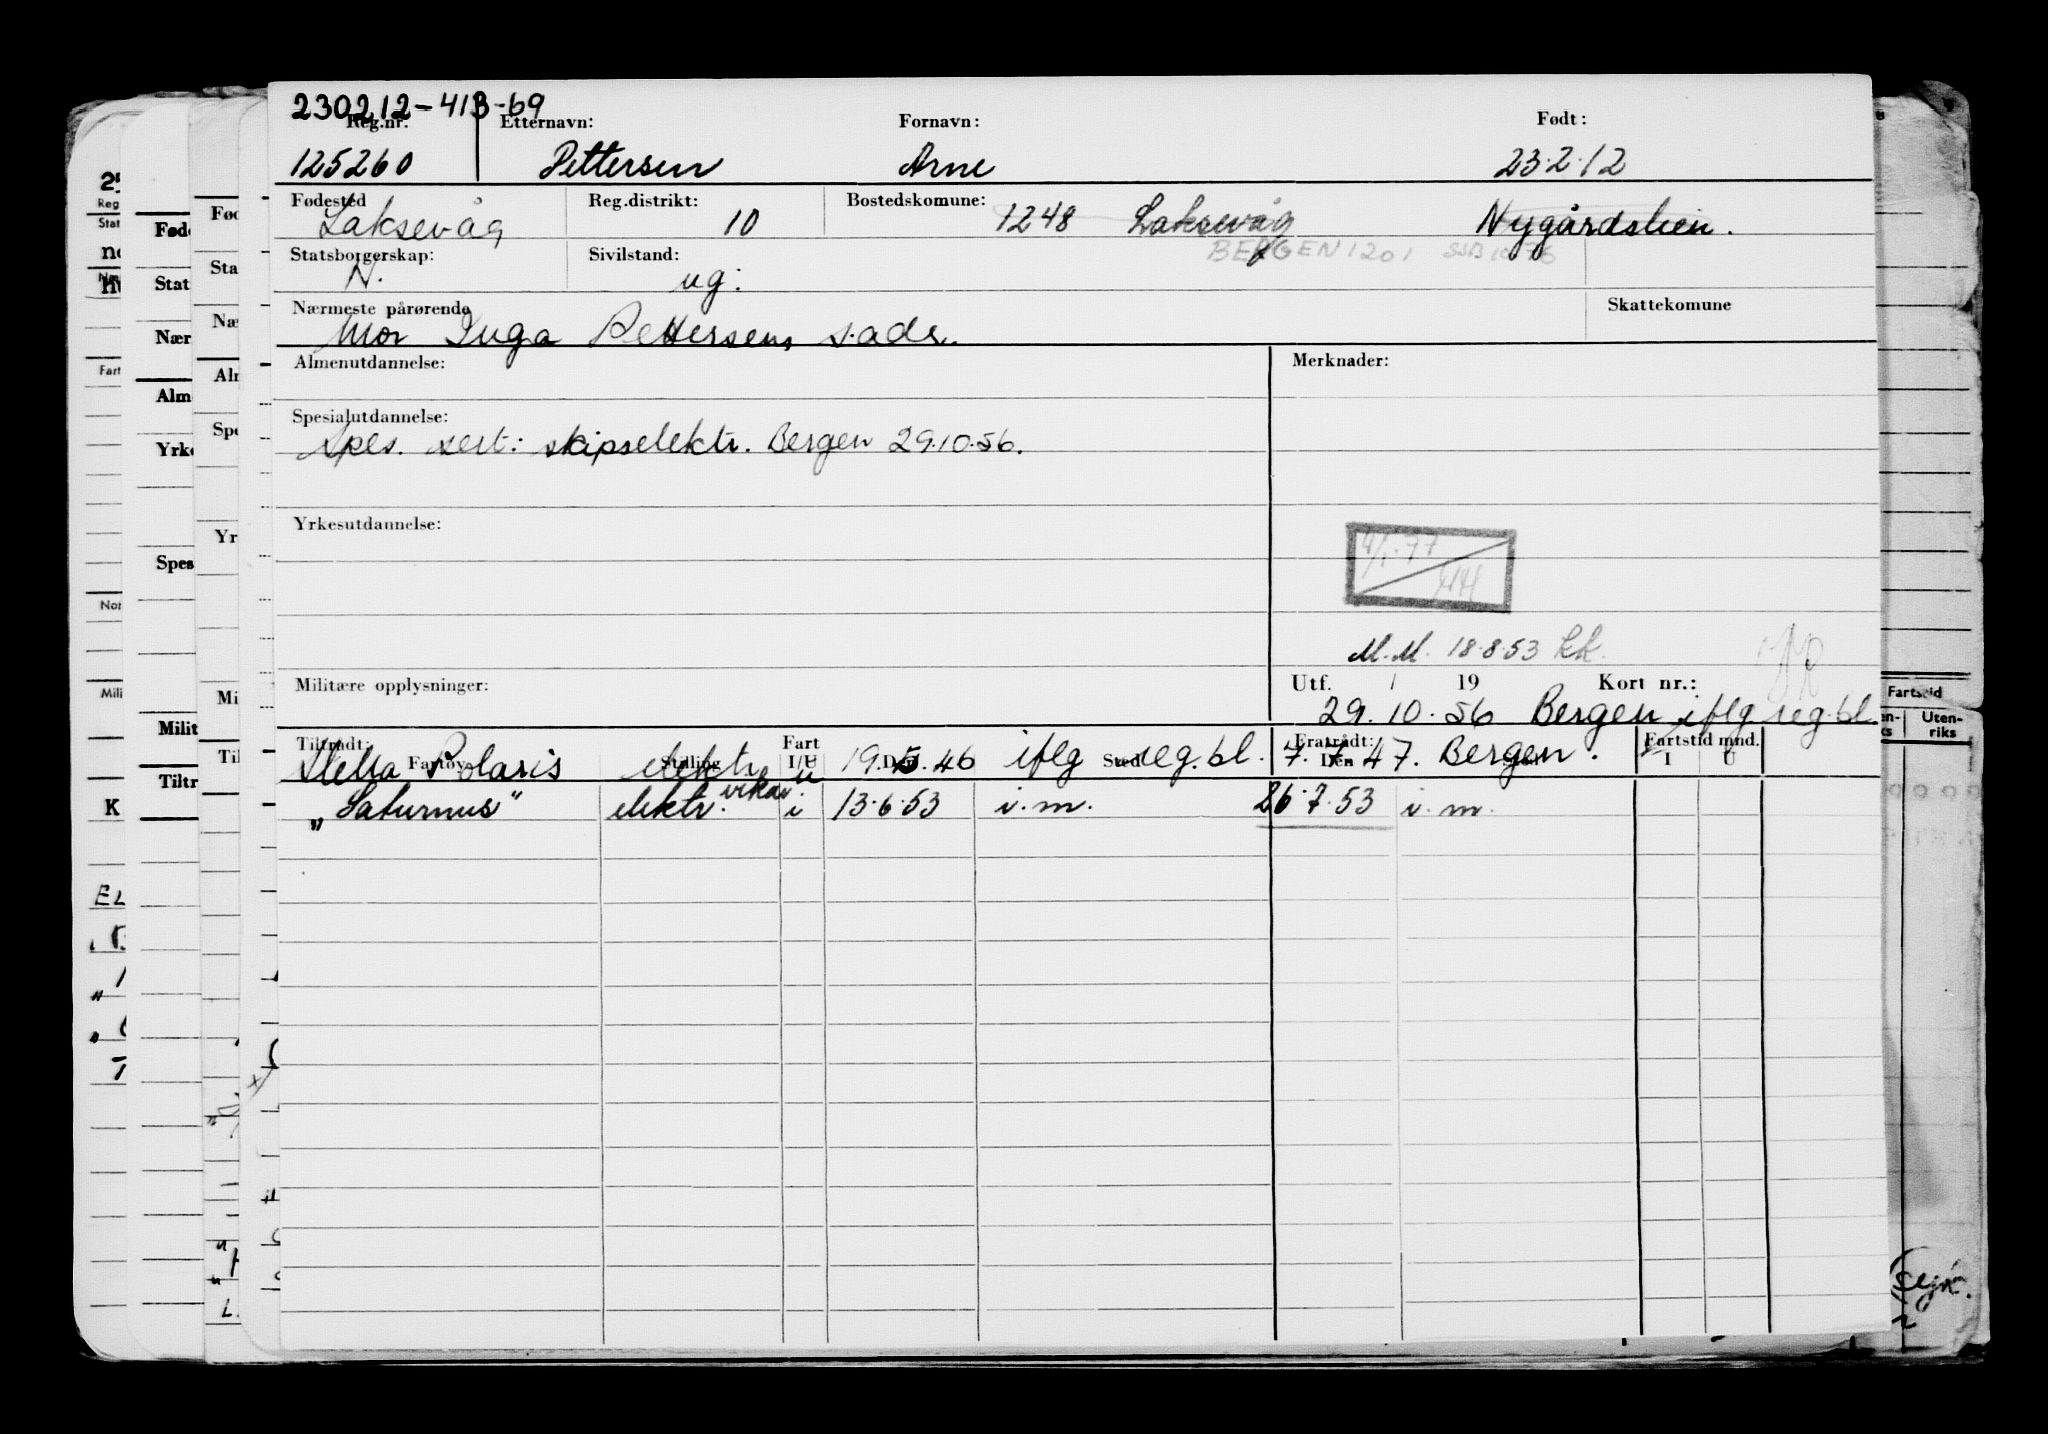 230212-413-69
Reg.nr. Etternavn: Fornavn: Født:
125260 Pettersen Arne 23.2.12
Fødested Reg.distrikt: Bostedskomune:
Laksevåg 10 1248 Laksevåg Nygårdslien.
BERGEN 1201
Statsborgerskap: Sivilstand:
N. ug.
Nærmeste pårørende Skattekomune
Mor Inga Pettersen, s.adr.
Almenutdannelse: Merknader:
Spesialutdannelse:
Spes. sert: skipselektr. Bergen 29.10.56.
Yrkesutdannelse:
4/1-77
M.M. 18.8.53 kk.
Militære opplysninger: Utf. / 19 Kort nr.:
29.10.56 Bergen iflg reg.bl.
Tiltrådt: Fart Fratrådt: Fartstid mnd.
Fartøy Stilling I/U Den Sted Den Sted I U
Stella Polaris elektr. u 19.5.46 iflg reg.bl. 7.7.47. Bergen.
„Saturnus" elektr. vikar i 13.6.53 i.m. 26.7.53 i.m.
Fartstid
Uten-
riks